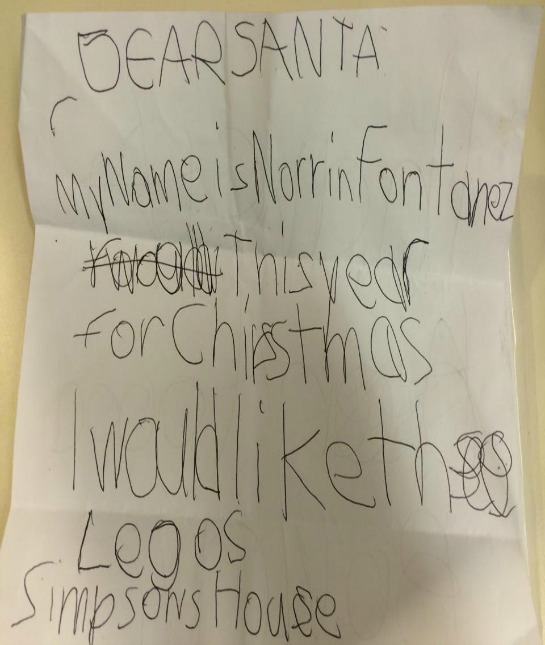 DEAR SANTA
My Name is Norrin Fontanez
This year
for Chirstmas
I would like the
Legos
Simpsons House